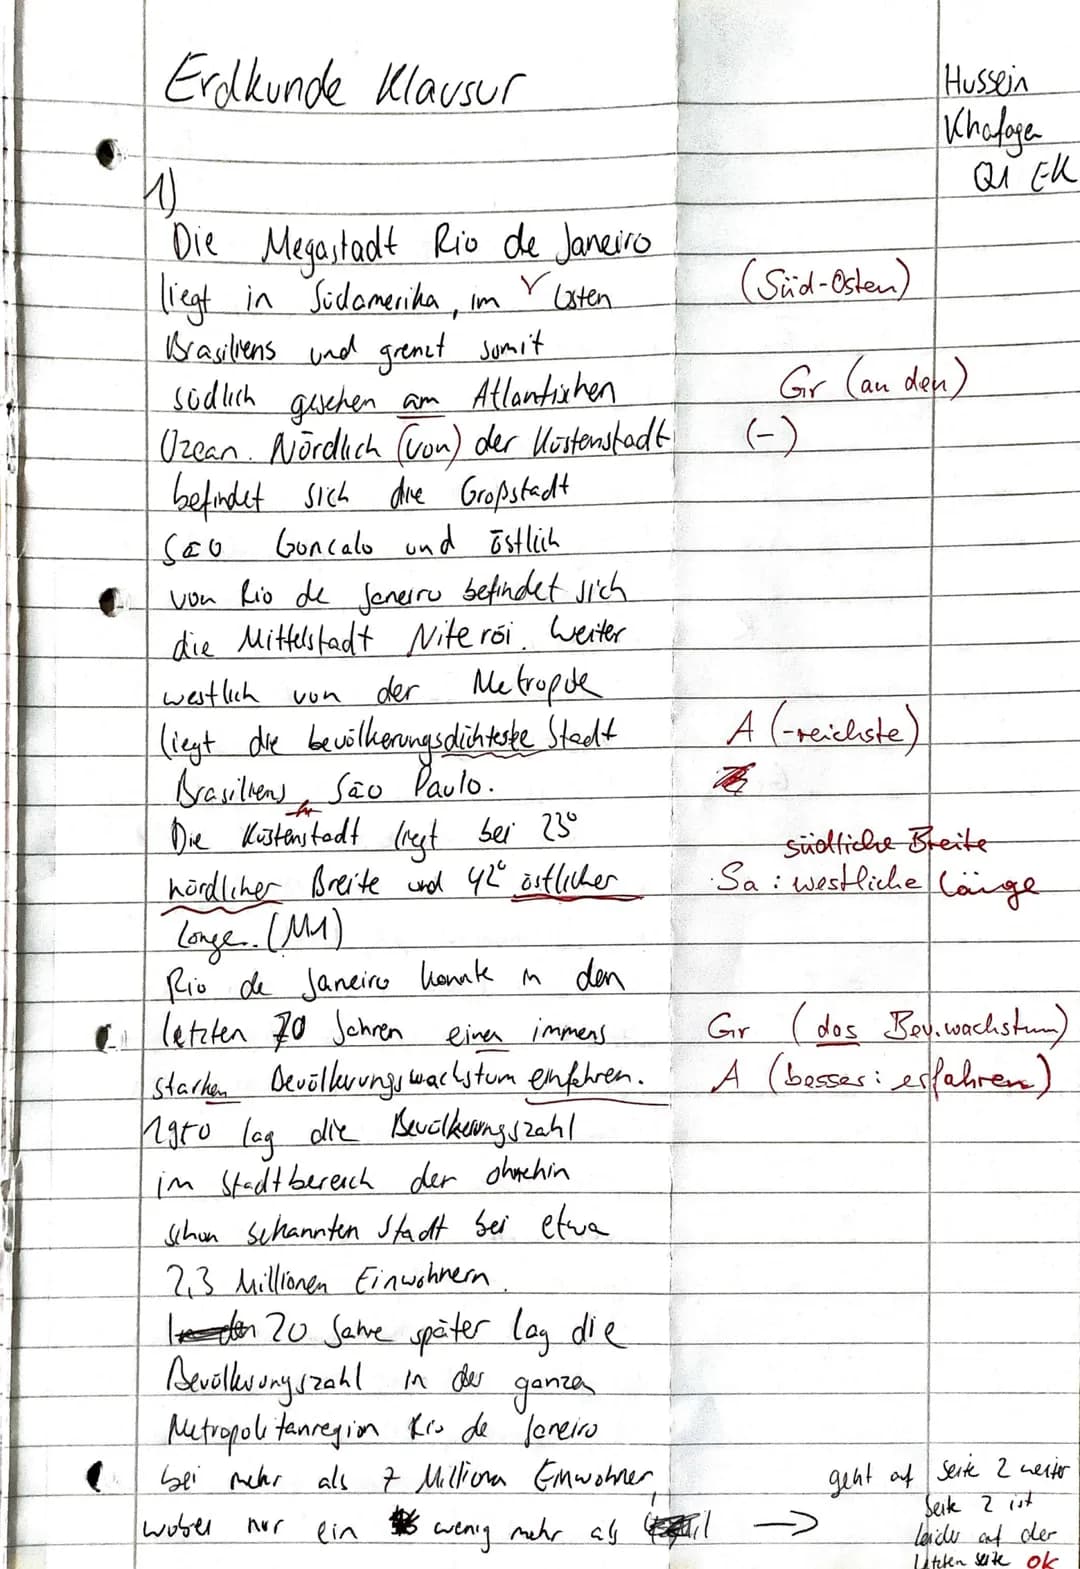 Erdkunde Klausur
Hussein
Khafaga
Q1 EK
1)
Die Megastadt Rio de Janeiro
liegt in Südamerika, im Osten
(Süd-Osten)
Brasiliens und grenzt somit
südlich gesehen am Atlantischen
Gr (an den)
Ozean. Nördlich (von) der Küstenstadt
(-)
befindet sich die Großstadt
São Goncalo und östlich
von Rio de Janeiro befindet sich
die Mittelstadt Niteroi. Weiter
westlich von der Metropole
liegt die bevölkerungsdichteste Stadt
A (-reichste)
Brasiliens, São Paulo.
Die Küstenstadt liegt bei 23°
südliche Breite
nördlicher Breite und 42° östlicher
Sa: westliche Länge
Länge. (M1)
Rio de Janeiro konnte in den
letzten 70 Jahren einen immens
Gr (das Bev.wachstum)
starken Bevölkerungswachstum einfahren.
A (besser: erfahren)
1950 lag die Bevölkerungszahl
im Stadtbereich der ohnehin
schon bekannten Stadt bei etwa
2,3 Millionen Einwohnern.
20 Jahre später lag die
Bevölkerungszahl in der ganzen
Metropolitanregion Rio de Janeiro
bei mehr als 7 Millionen Einwohner,
wobei nur ein wenig mehr als →
geht auf Seite 2 weiter
Seite 2 ist
leider auf der
letzten Seite ok